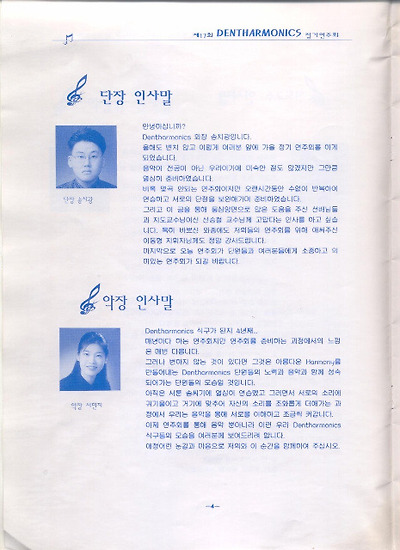 제17회 DENTHARMONICS 정기연주회
단장 인사말
안녕하십니까?
Dentharmonics 회장 송지광입니다.
올해도 변치 않고 이렇게 여러분 앞에 가을 정기 연주회를 이게
되었습니다.
음악이 전공이 아닌 우리이기에 미숙한 점도 많겠지만 그만큼
열심히 준비하였습니다.
비록 몇곡 안되는 연주회이지만 오랜시간동안 수없이 반복하여
연습하고 서로의 단점을 보완해가며 준비하였습니다.
그리고 이 글을 통해 물심양면으로 많은 도움을 주신 선배님들
과 지도교수님이신 신승철 교수님께 고맙다는 인사를 하고 싶습
니다. 특히 바쁘신 와중에도 저희들의 연주회를 위해 애써주신
이동형 지휘자님께도 정말 감사드립니다.
마지막으로 오늘 연주회가 단원들과 여러분들에게 소중하고 의
미있는 연주회가 되길 바랍니다.
단장 송지광
악장 인사말
Dentharmonics 식구가 된지 4년째..
매년마다 하는 연주회지만 연주회를 준비하는 과정에서의 느낌
은 매번 다릅니다.
그러나 변하지 않는 것이 있다면 그것은 아름다운 Harmony를
만들어내는 Dentharmonics 단원들의 노력과 음악과 함께 성숙
되어가는 단원들의 모습일 것입니다.
아직은 서툰 솜씨기에 열심히 연습했고 그러면서 서로의 소리에
귀기울이고 거기에 맞추어 자신의 소리를 조화롭게 더해가는 과
정에서 우리는 음악을 통해 서로를 이해하고 조금씩 커갑니다.
이제 연주회를 통해 음악 뿐아니라 이런 우리 Dentharmonics
식구들의 모습을 여러분께 보여드리려 합니다.
애정어린 눈길과 마음으로 저희와 이 순간을 함께하여 주십시오.
악장
-4-